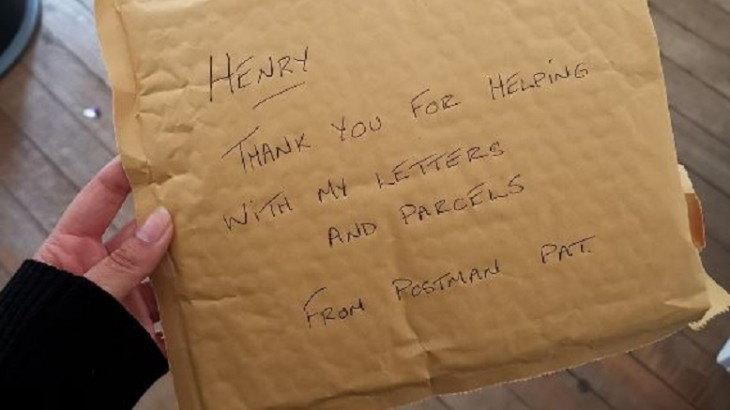 HENRY
THANK YOU FOR HELPING
WITH MY LETTERS
AND PARCELS
FROM POSTMAN PAT.